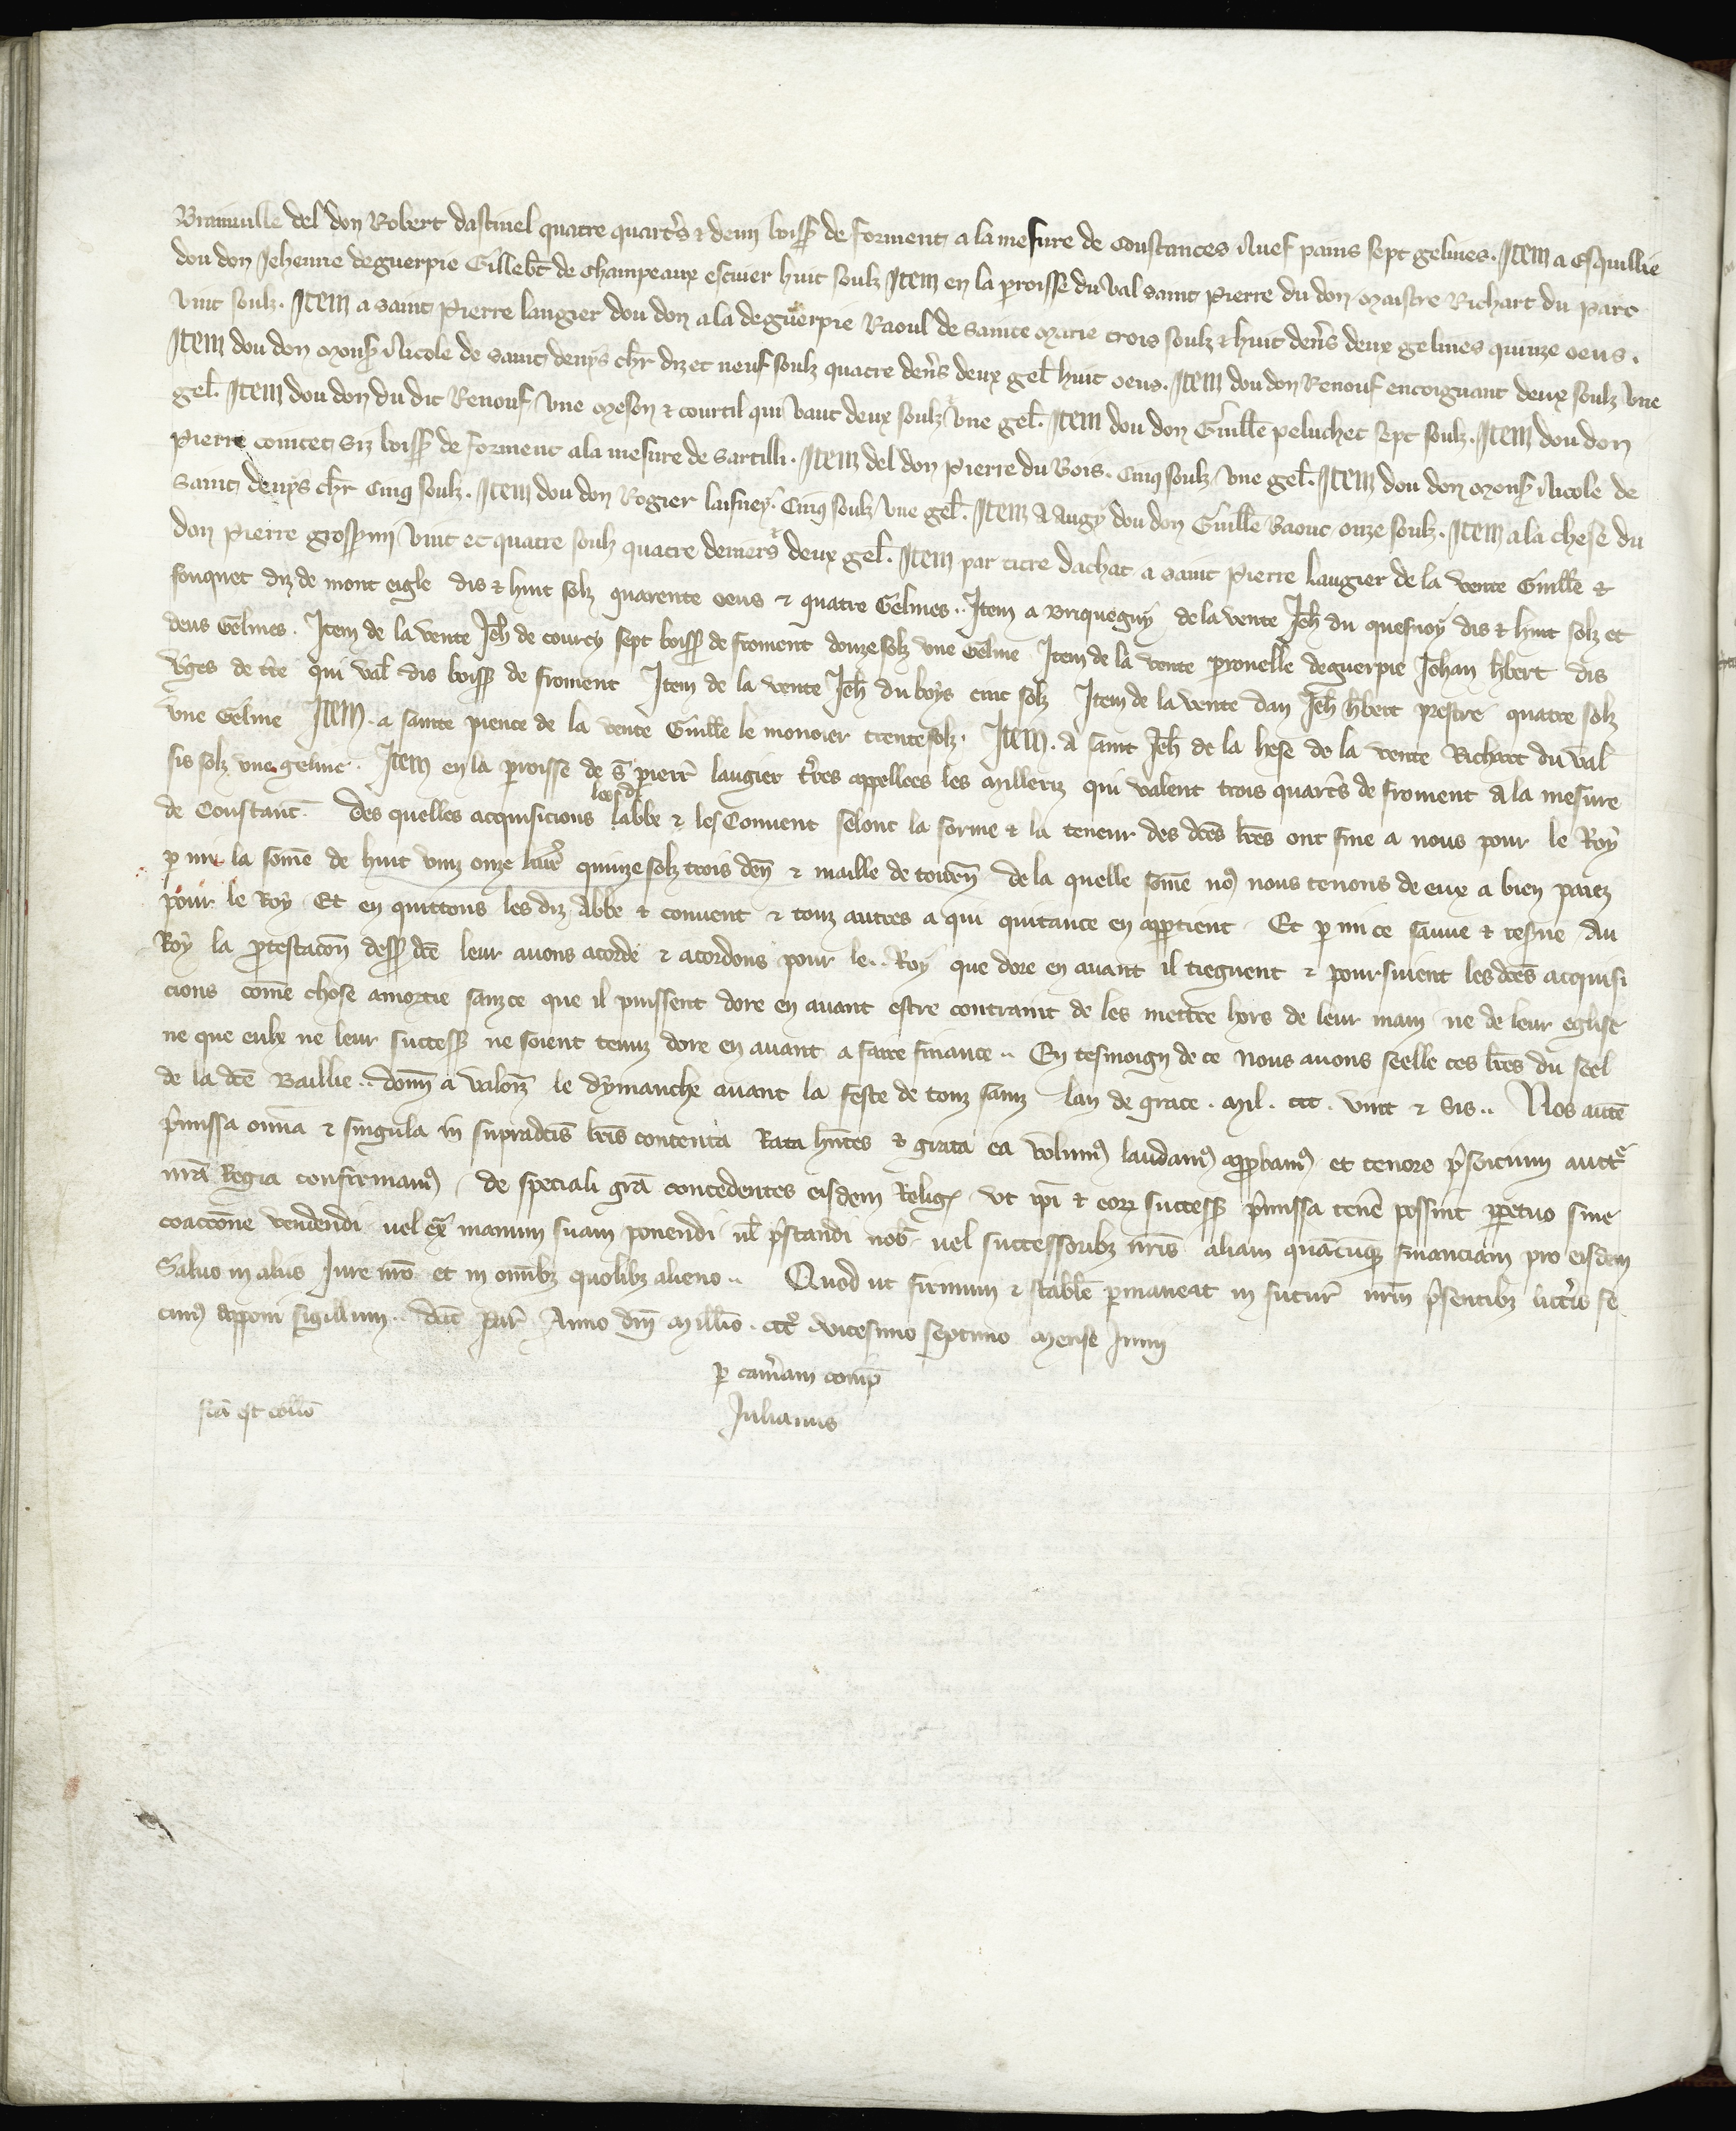 Brainville del don Robert dastinel quatre quarts̉ ⁊ demi boiss̉ de forment a la mesure de Coustances Nuef pains sept gelines. Item a Esquillie
dou don Jehenne deguerpie Gillebt̃ de Champeaux escuier huit soulz Item en la paroisse du Val saint Pierre du don Maistre Richart du Parc
vint soulz. Item a saint Pierre laugier dou don a la deguerpie Raoul de sainte Marie trois soulz ⁊ huit den̉s deux gelines quinze oeus.
Item dou don Mons̉ Nicole de saint denys chr̃ diz et neuf soulz quatre den̉s deux gel̃ huit oeus. Item dou don Renouf encoignant deux soulz vne
gel̃. Item dou don du dit Renouf vne Meson ⁊ courtil qui vaut deux soulz vne gel̃. Item dou don Guill̃e peluchet sept soulz. Item dou don
Pierre comtet siz boiss̉ de forment a la mesure de Sartilli. Item del don Pierre du Bois. Cinq soulz vne gel̃. Item dou don Mons̉ Nicole de
saint denys chr̃ Cinq soulz. Item dou don Rogier laisney. Cinq soulz vne gel̃. Item a Angy dou don Guill̃e Baouc onze soulz. Item a la chese du
don Pierre grosparmi vint et quatre soulz quatre deniers deux gel̃. Item par titre dachat a saint Pierre laugier de la vente Guill̃e ⁊
fouquet diz de mont eigle dis ⁊ huit solz quarente oeus ⁊ quatre Gelines.. Item a Briqueguy de la vente Jeh̃ du quesnoy dis ⁊ huit solz et
deus Gelines. Item de la vente Jeh̃ de courcy sept boiss̃ de froment douze solz vne Geline Item de la vente peronelle deguerpie Johan hb̃ert dis
v̉ges de tr̃e qui val̃ dis boiss̃ de froment Item de la vente Jeh̃ du boys cinc solz Item de la vente dan Jeh̃ hb̃ert prestre quatre solz
vne Geline Item. a sainte pience de la vente Guill̃e le monoier trente solz. Item. a saint Jeh̃ de la hese de la vente Richart du val
sis solz vne geline. Item en la p̱oisse de s̃ pierr̃ laugier t̉res appellees les Milleriz qui valent trois quart̉s de froment a la mesure
de Constanc̃. Des quelles acquisicions lesd̃ labbe ⁊ les Conuent selonc la forme ⁊ la teneur des dc̃es lr̃es ont fine a nous pour le Roy
p̱ mi la som̃e de huit vinz onze liur̉ quinze solz trois den̄ ⁊ maille de tourn̄ de la quelle som̃e noꝰ nous tenons de eux a bien paiez
pour le Roy Et en quittons les diz Abbe ⁊ conuent ⁊ touz autres a qui quitance en app̱tient. Et p̱ mi ce sauue ⁊ tesrue Au
Roy la p̃testacõn dess̃ dc̃e leur auons acorde ⁊ acordons pour le.. Roy que dore en auant il tiegnent ⁊ poursuient lesdc̃es acquisi
cions com̃e chose amortie sanz ce que il puissent dore en auant estre contraint de les mettre hors de leur main ne de leur eglise
ne que eulx ne leur success̃ ne soient tenuz dore en auant a faire finance.. En tesmoign de ce nous auons seelle ces lr̃es du seel
de la dc̃e Baillie.. don̄ a valoiñ le dymanche auant la feste de touz sainz lan de grace. Mil. ccc. vint ⁊ sis.. Nos aut̃e
p̉missa om̃ia ⁊ singula in supradc̃is lr̃is contenta Rata hñtes ⁊ grata ea volumꝰ laudamꝰ app̱bamꝰ et tenore p̉sencium auct̃e
nr̃a Regia confirmamꝰ / de speciali gr̃a concedentes eisdem Relig̃ vt ip̃i ⁊ eoꝝ success̃ p̉missa ten̉e possint p̱petuo sine
coaccõne vendendi vel ex̃ manum suam ponendi ul̃ p̉standi nob̃ uel successoribꝫ nr̃is aliam quãcũqꝫ financiam pro eisdem
Saluo in aliis Iure nr̃o et in om̃ibꝫ quolibꝫ alieno.. Quod ut firmum ⁊ stabil̃e p̱maneat in futur̃ nr̃m p̉sentibꝫ litt̉is fe
cimꝰ apponi sigillum. Dat̃ Par̃ Anno dñi Mill̃io. cccº. vicesimo septimo mense Junij
p̱ cam̉am comp̃
Julianus
fc̃a est coll̃o